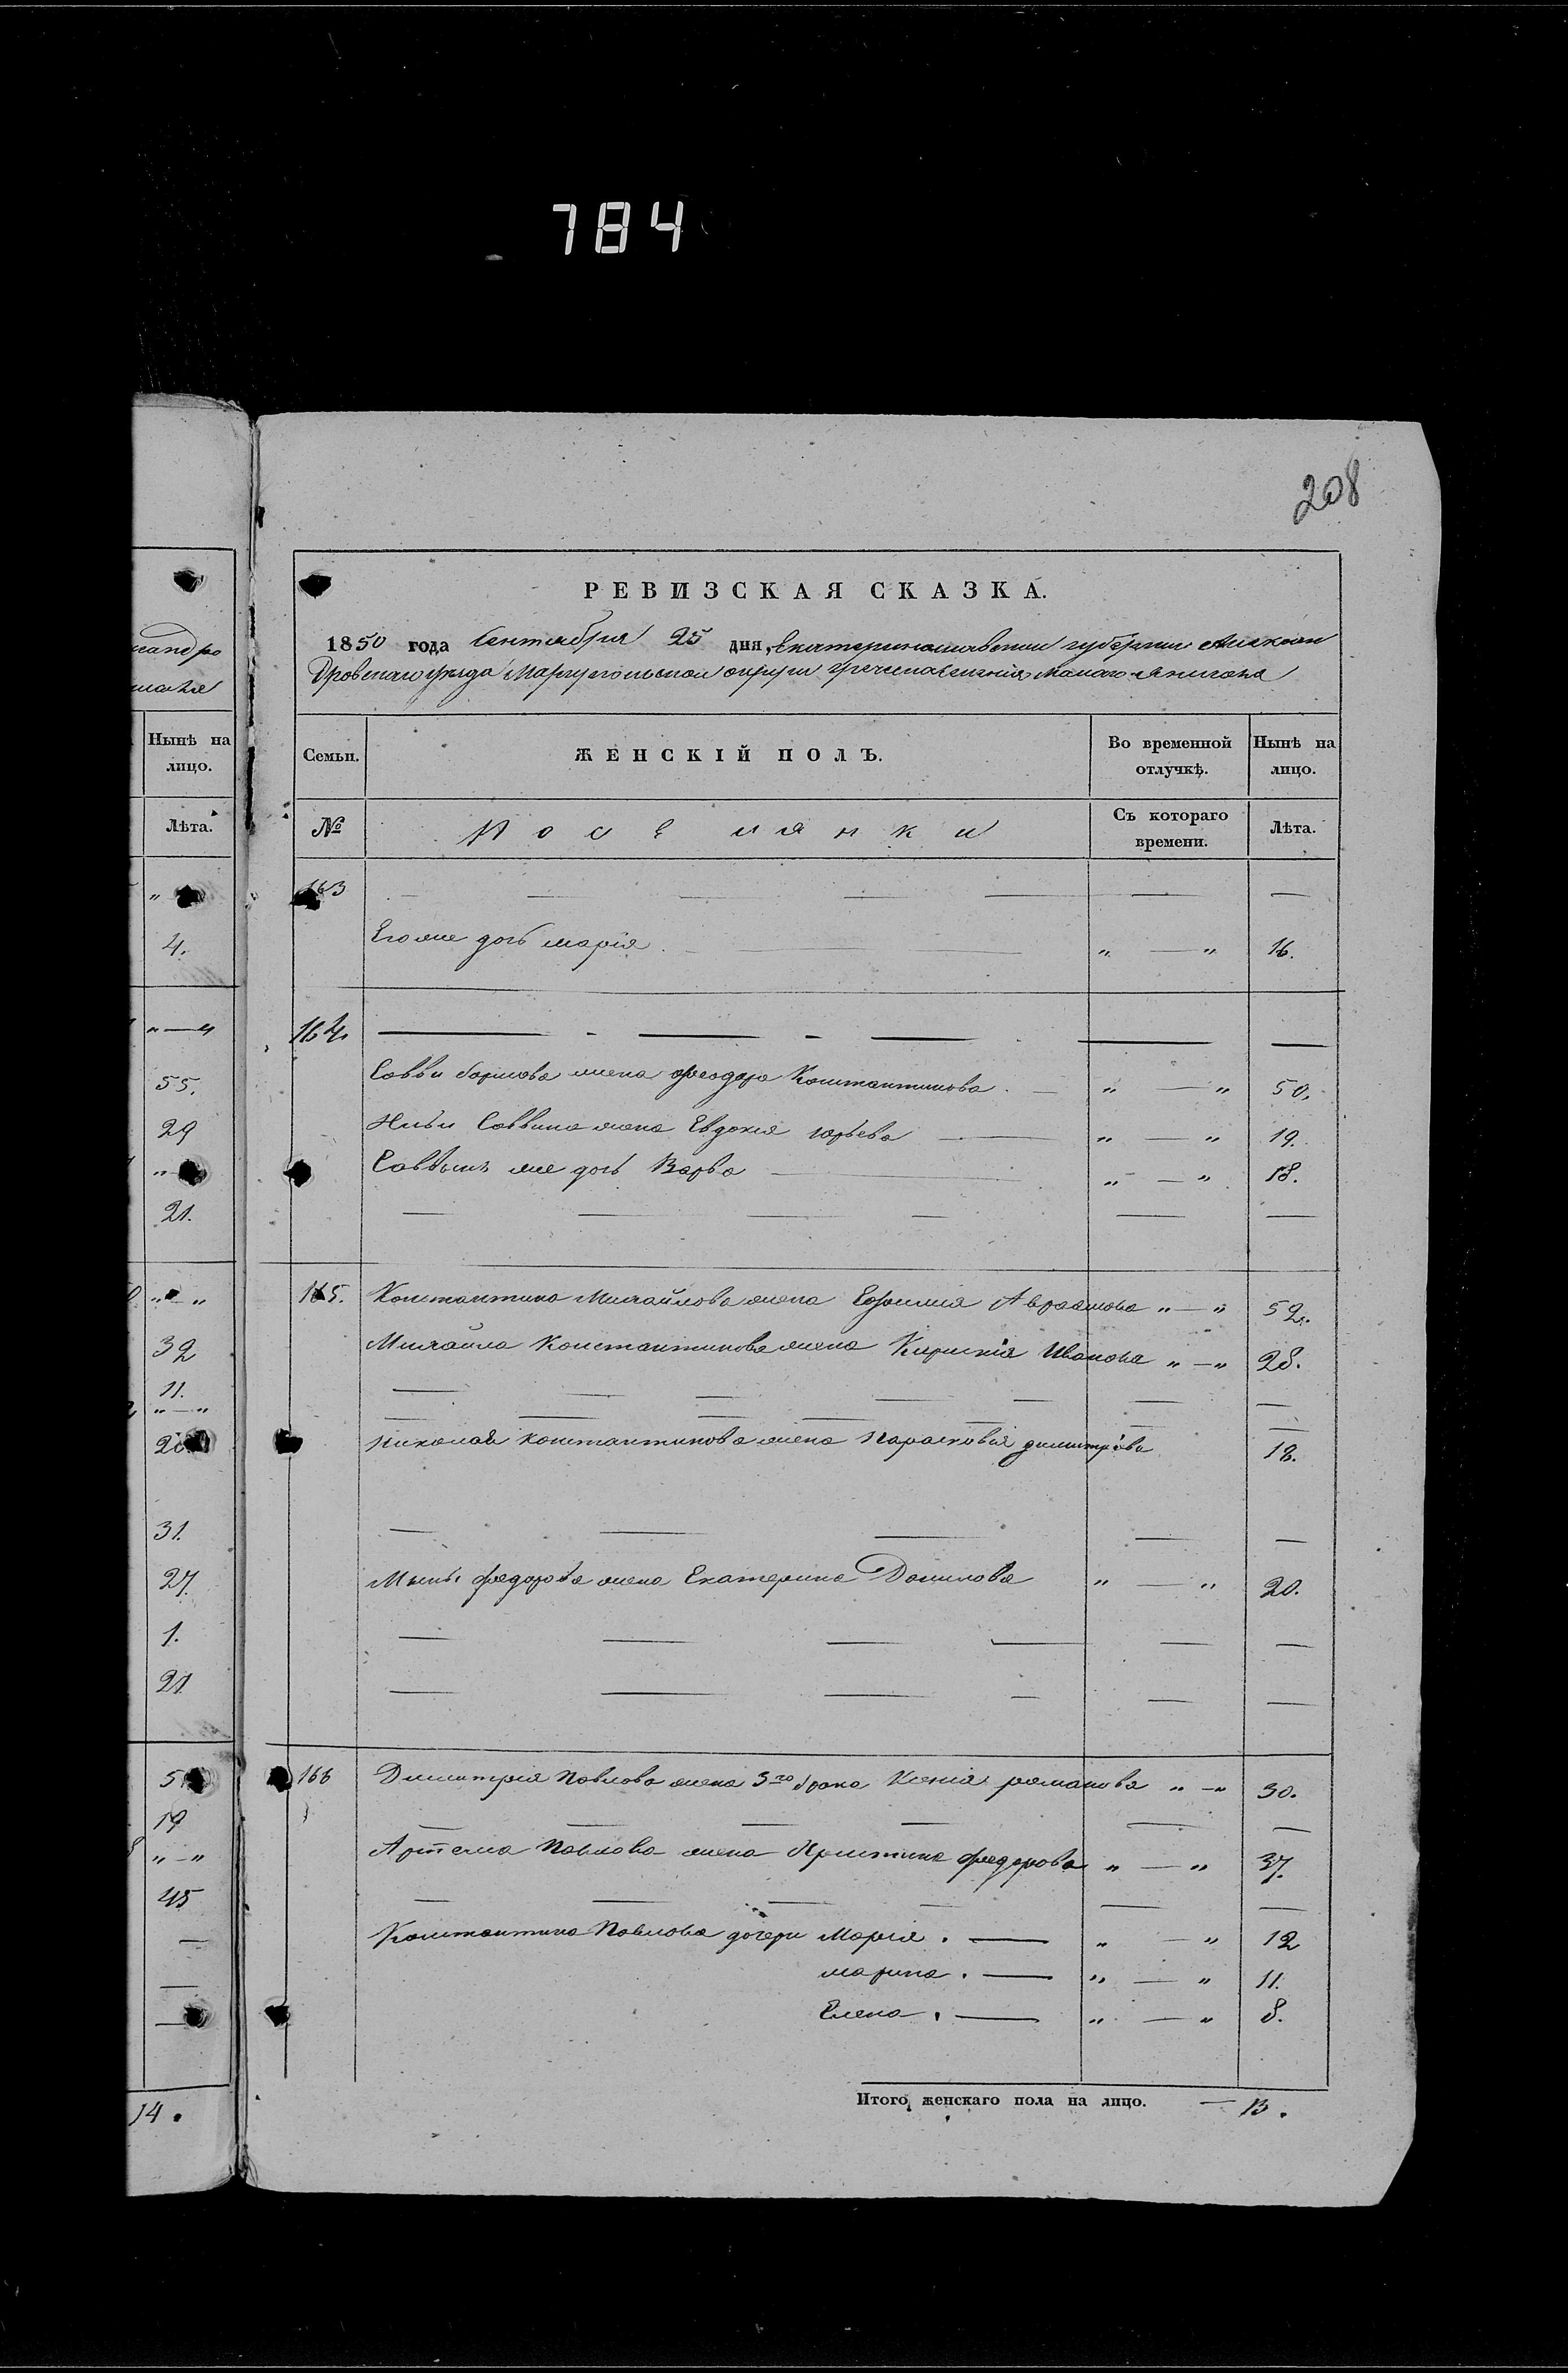 784
208
сандро
Нынѣ на
лицо.
Лѣта.
"
4.
" — "
55.
29
"
21.
" "
32
11.
" — "
31.
27.
1.
21
19
" — "
45
—
—
—
14.
РЕВИЗСКАЯ СКАЗКА.
1850 года Сентября 25 дня, Екатеринославской губернии Алексан
Дровскаго уѣзда Мариупольскаго округи греческаго селенія Малаго Янисоля
Семьи. ЖЕНСКІЙ ПОЛЪ. Во временной отлучкѣ. Нынѣ на лицо.
№ Поселянки Съ котораго времени. Лѣта.
163 — — — — — — —
Его же дочь марія. — " — " 16.
164. — - — - — — —
Саввы жена феодора Константинова. — " — " 50.
Ильи Саввина жена Евдокія юрьева — " — " 19.
же дочь Варва — " — " 18.
— — — — — —
165. Константина Михайлова жена Ефимия Авраамова " — " 52.
Михаила Константинова жена Кирикія Иванова " — " 28.
— — — — — — —
— — — — — — —
Николая константинова жена Парасковія димитріева 18.
— — — — —
федорова жена Екатерина Данилова " — " 20.
— — — — — —
— — — — — —
166 Димитрія Павлова жена 3го брака Ксенія романова " — " 30.
— — — — — —
Артема Павлова жена Христина федорова " — " 37.
— — — — — —
Константина Павлова дочери Марія. — " — " 12
марина. — " — " 11.
Елена. — " — " 8.
Итого женскаго пола на лицо. — 13.